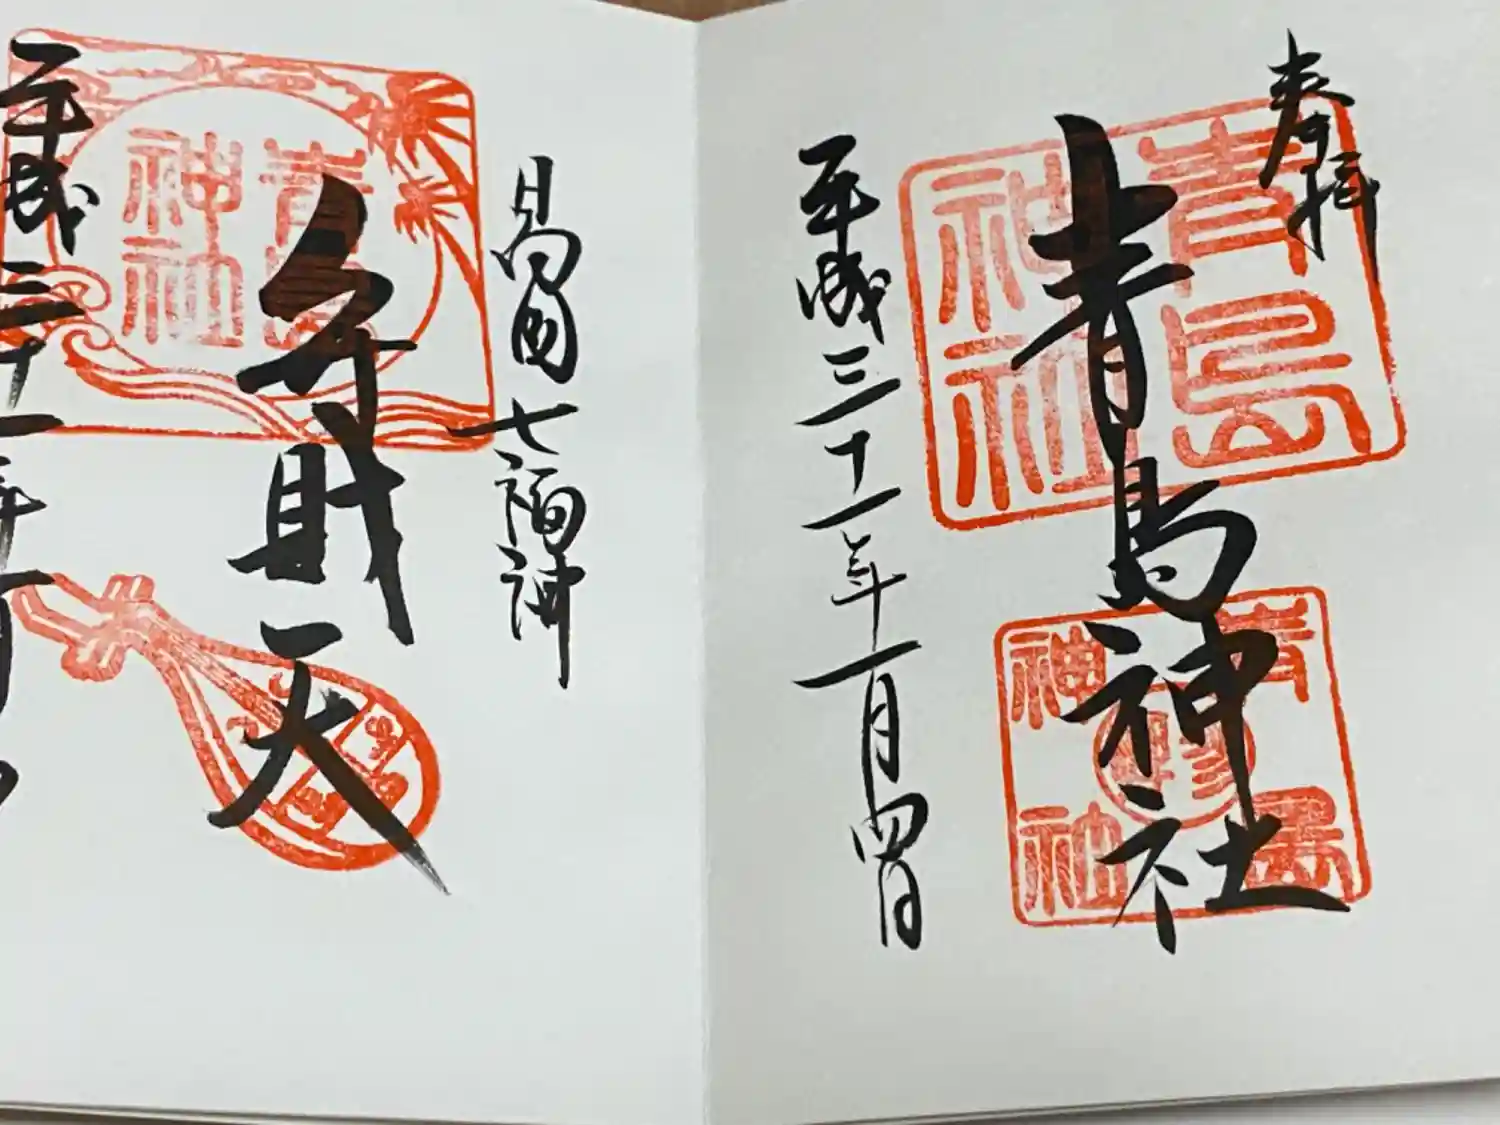 奉拝
青島神社
平成三十一年一月四日
青島
神社
青島
神社
日向国七福神
弁財天
平成三十一年一月
青島
神社